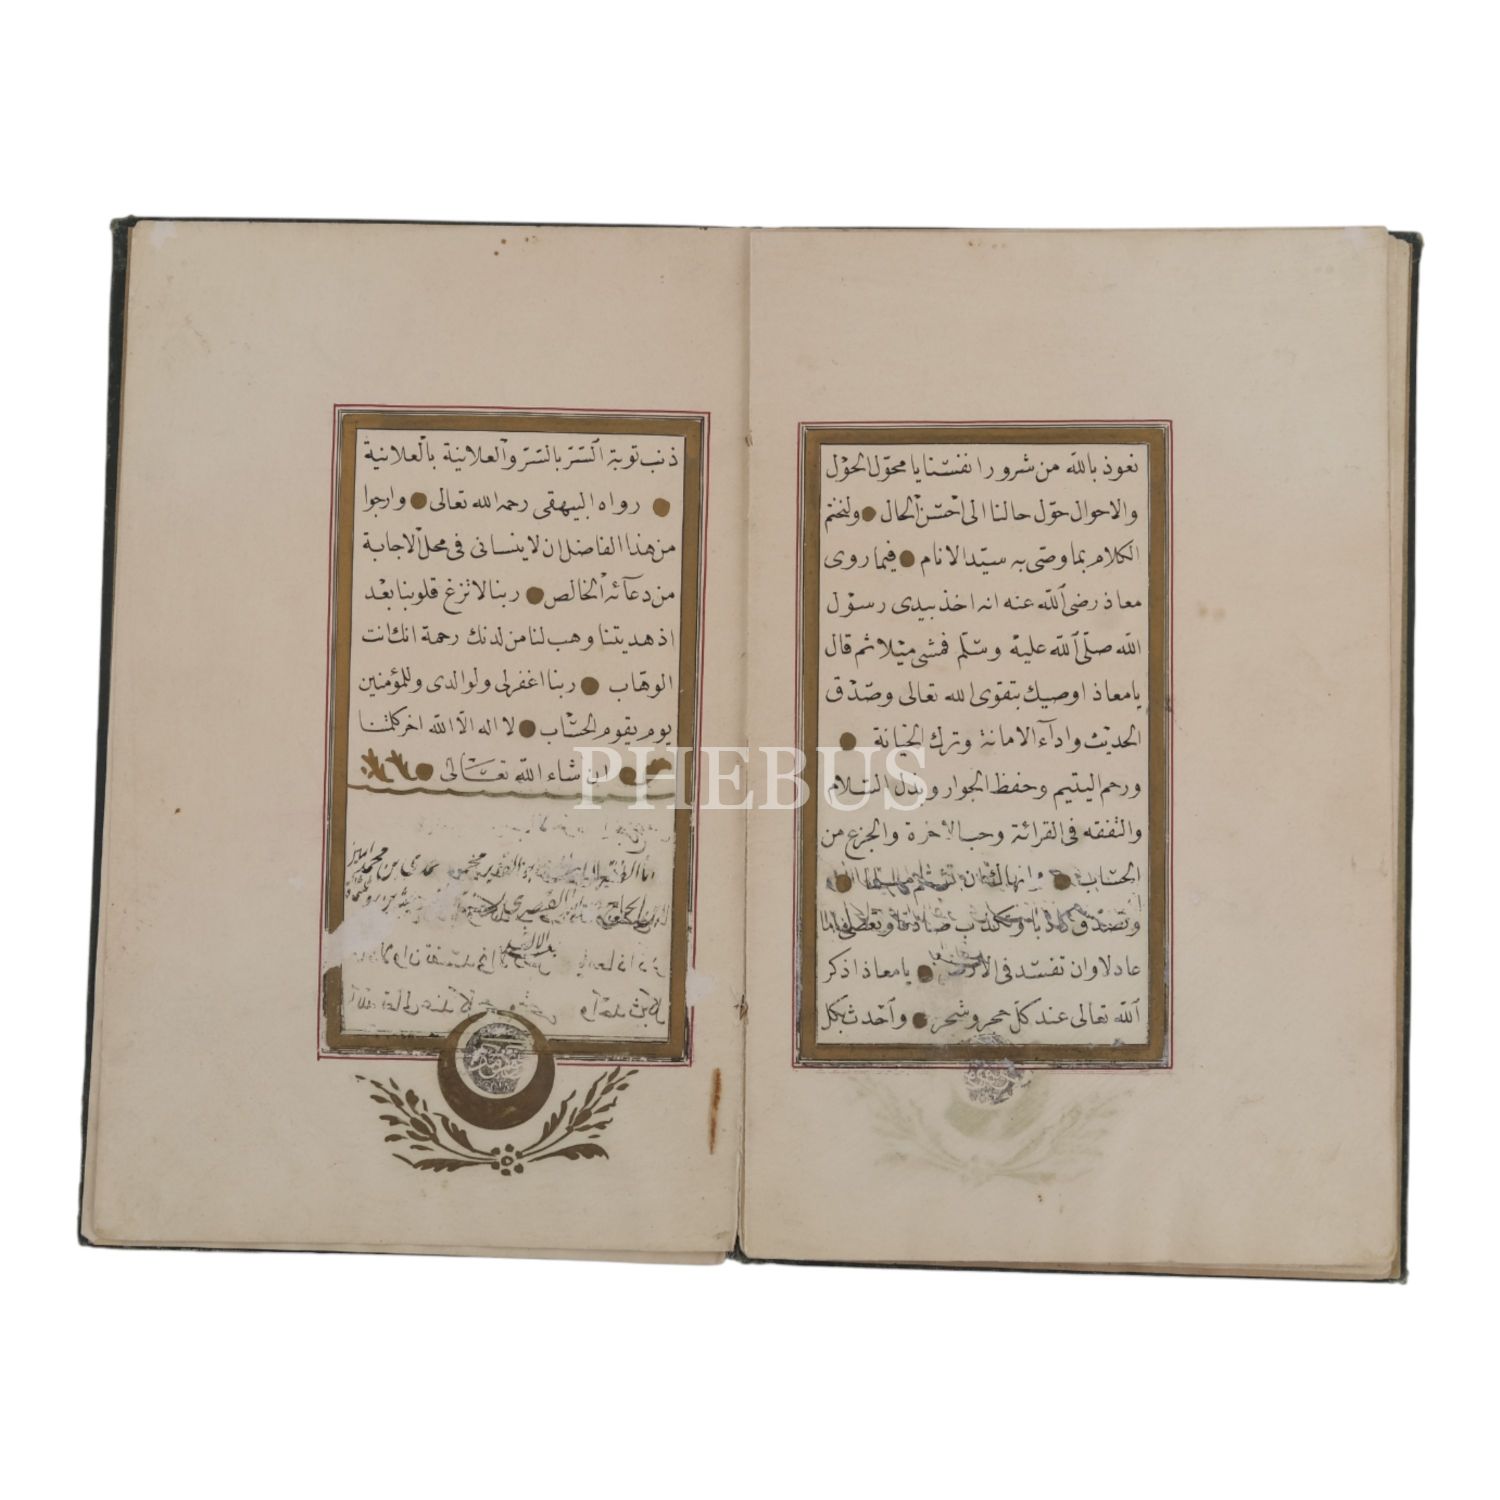 نعوذ بالله من شرور انفسنا يا محوّل الحول
والاحوال حوّل حالنا الى احسن الحال ولنختم
الكلام بما وصّى به سيّد الانام فيما روى
معاذ رضى الله عنه انه اخذ بيدى رسول
الله صلّى الله عليه وسلّم فمشى ميلا ثم قال
يا معاذ اوصيك بتقوى الله تعالى وصدق
الحديث واداء الامانة وترك الخيانة
ورحم اليتيم وحفظ الجوار وبذل السلام
والتفقه فى القرائة وحب الاخرة والجزع من
الحساب وانهاك ان تشتم
وتصدّق كاذبا وتكذب صادقا وتعصى اماما
عادلا وان تفسد فى الارض يا معاذ اذكر
الله تعالى عند كلّ حجر وشجر واحدث بكل
ذنب توبة السّر بالسّر والعلانية بالعلانية
رواه البيهقى رحمه الله تعالى وارجوا
من هذا الفاضل ان لا ينسانى فى محل الاجابة
من دعآئه الخالص ربنا لا تزغ قلوبنا بعد
اذ هديتنا وهب لنا من لدنك رحمة انك انت
الوهاب ربنا اغفر لى ولوالدى وللمؤمنين
يوم يقوم الحساب لا اله الّا الله اخر كلمتنا
ان شاء الله تعالى
PHEBUS